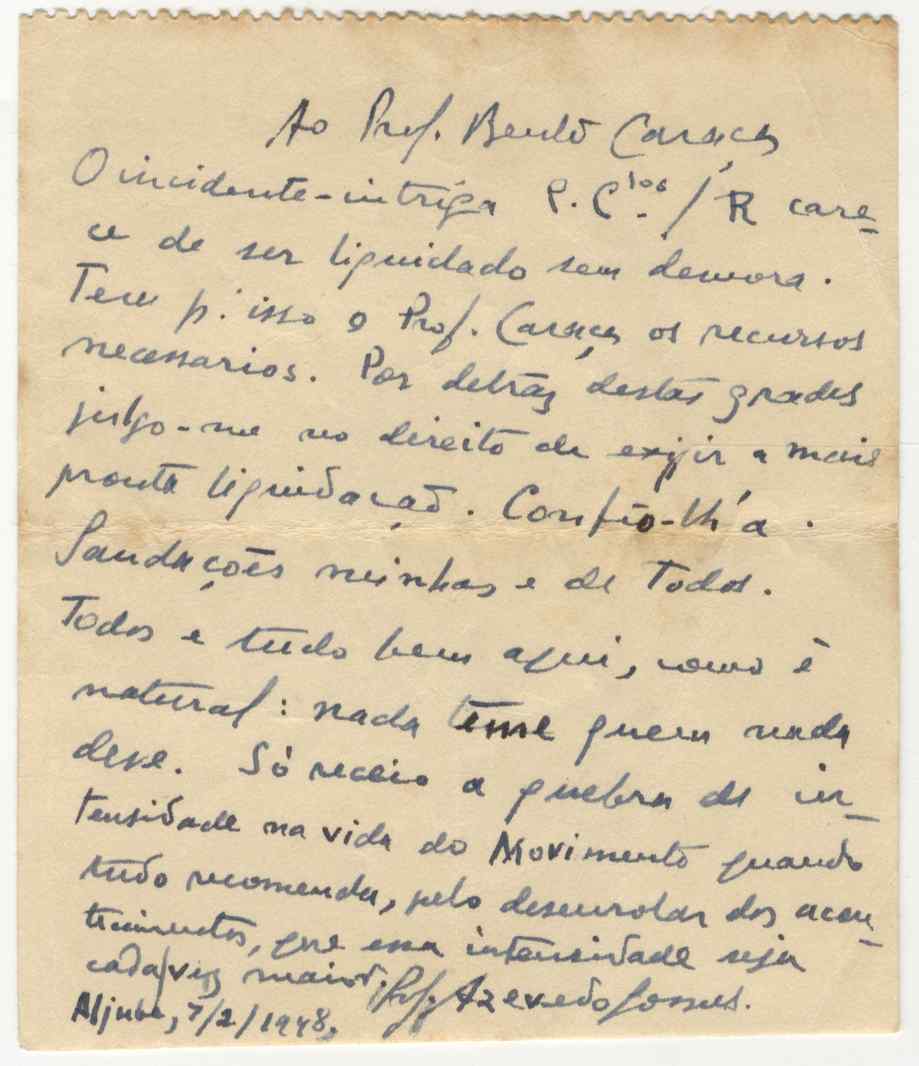 Ao Prof. Bento Caraça
O incidente-intriga P. C.los / R care-
ce de ser liquidado sem demora.
Tem p.ª isso o Prof. Caraça os recursos
necessarios. Por detráz destas grades
julgo-me no direito de exigir a mais
pronta liquidação. Confio-lh'a.
Saudações minhas e de Todos.
Todos e tudo bem aqui, como é
natural: nada teme quem nada
deve. Só receio a quebra de in-
tensidade na vida do Movimento quando
tudo recomenda, pelo desenrolar dos acon-
tecimentos, que essa intensidade seja
cada vez maior. Prof. Azevedo Gomes.
Aljube, 7/2/1948,